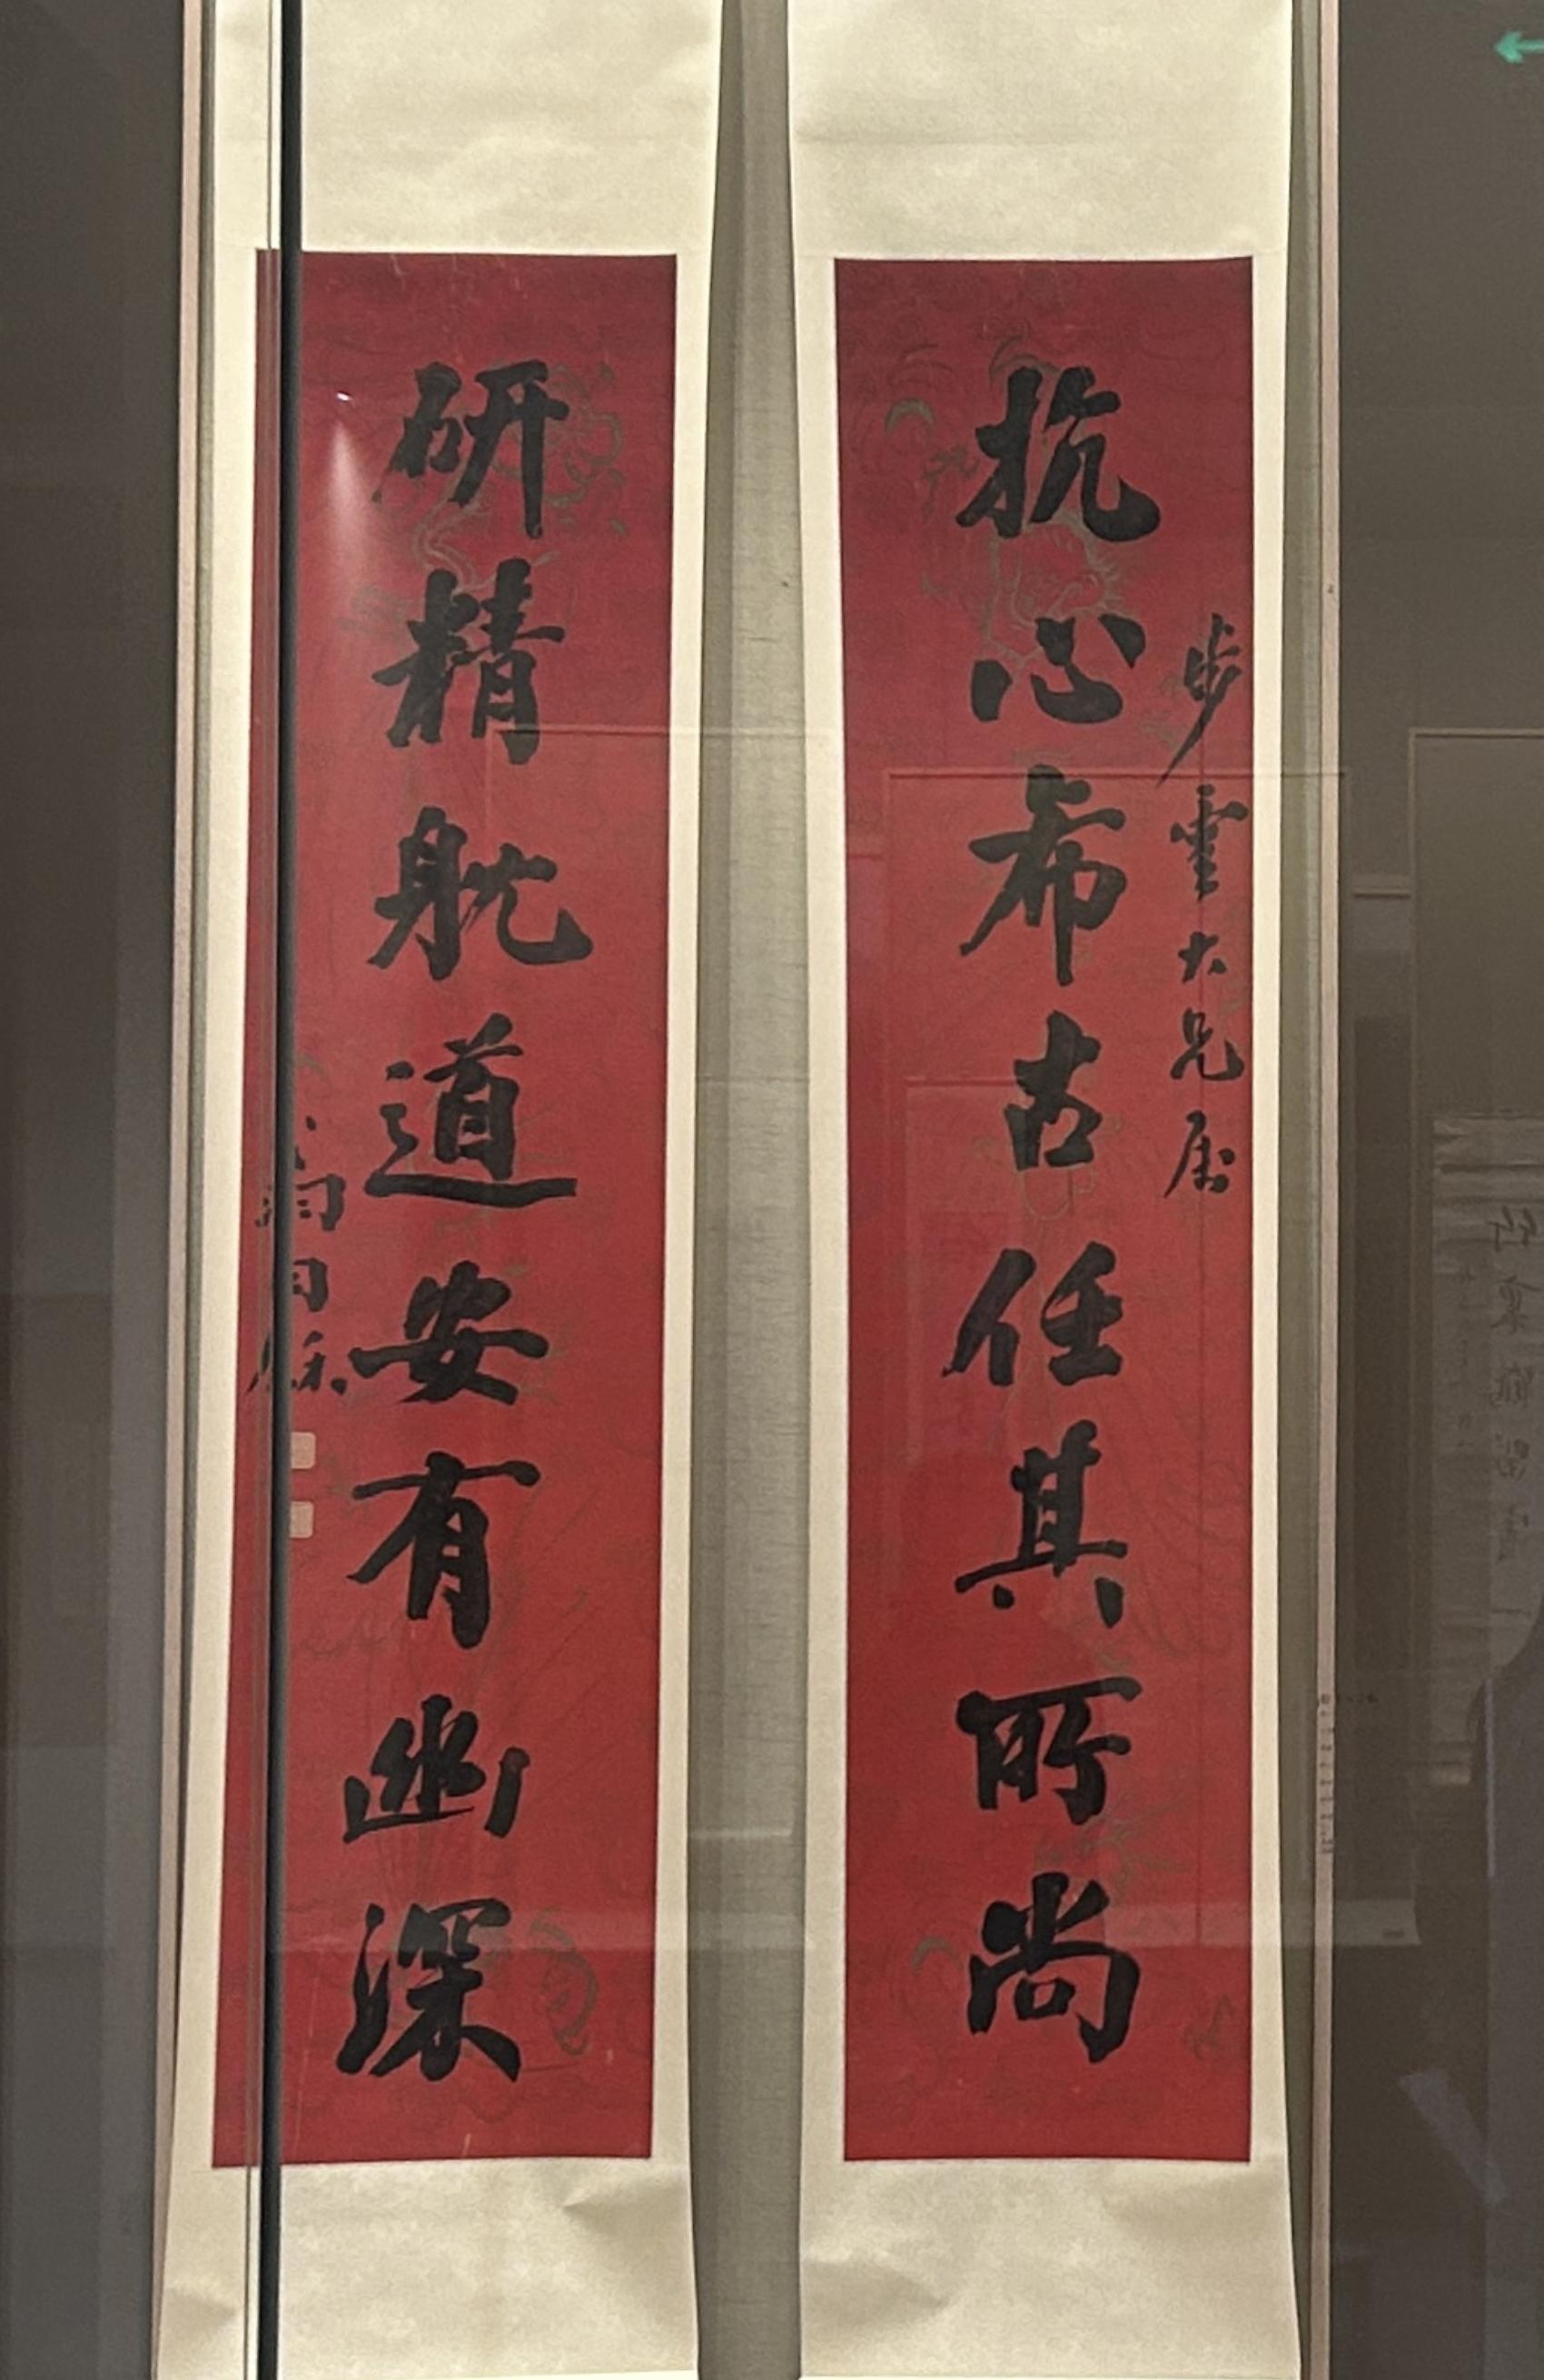 抗心希古任其所尚
步雲大兄屬
研精躭道安有幽深
同龢